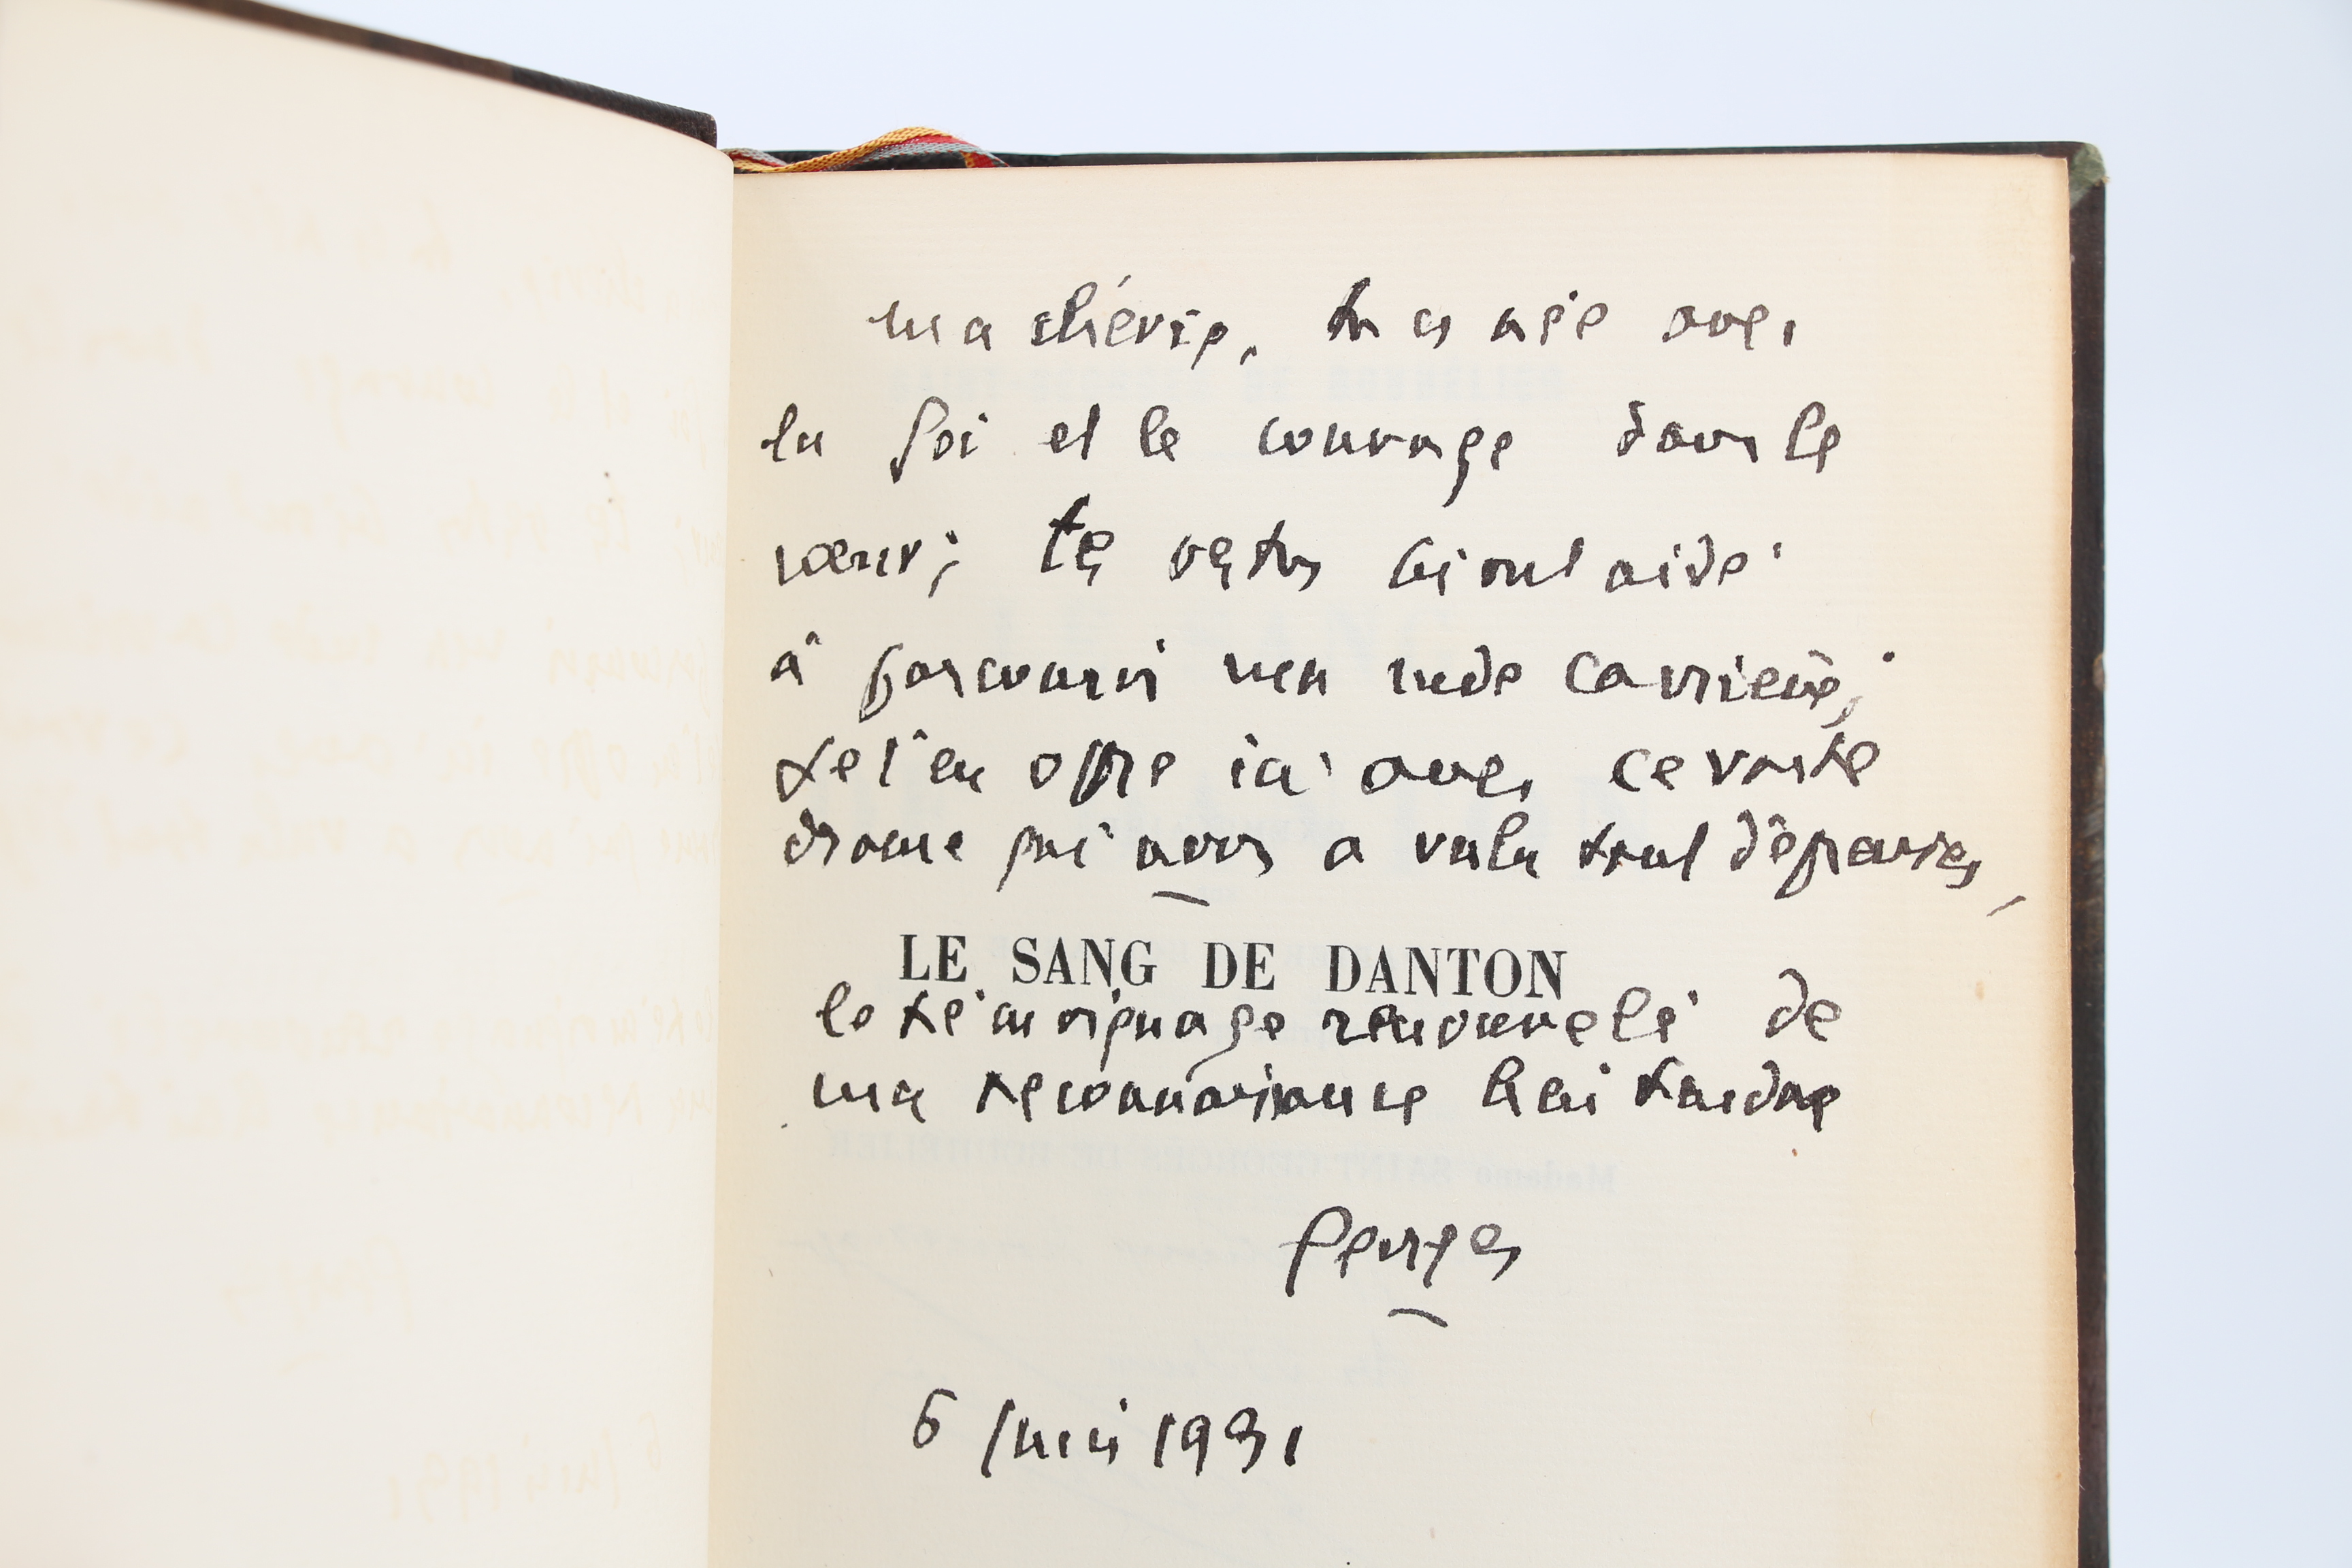 ma chérie, tu es née avec
la foi et le courage dans le
cœur; tes vertus m'ont aidé
à parcourir ma rude carrière;
je t'en offre ici avec ce vaste
drame qui nous a valu tant d'épreuves,
LE SANG DE DANTON
le témoignage renouvelé de
ma reconnaissance et ma tendresse
Georges
6 juin 1931